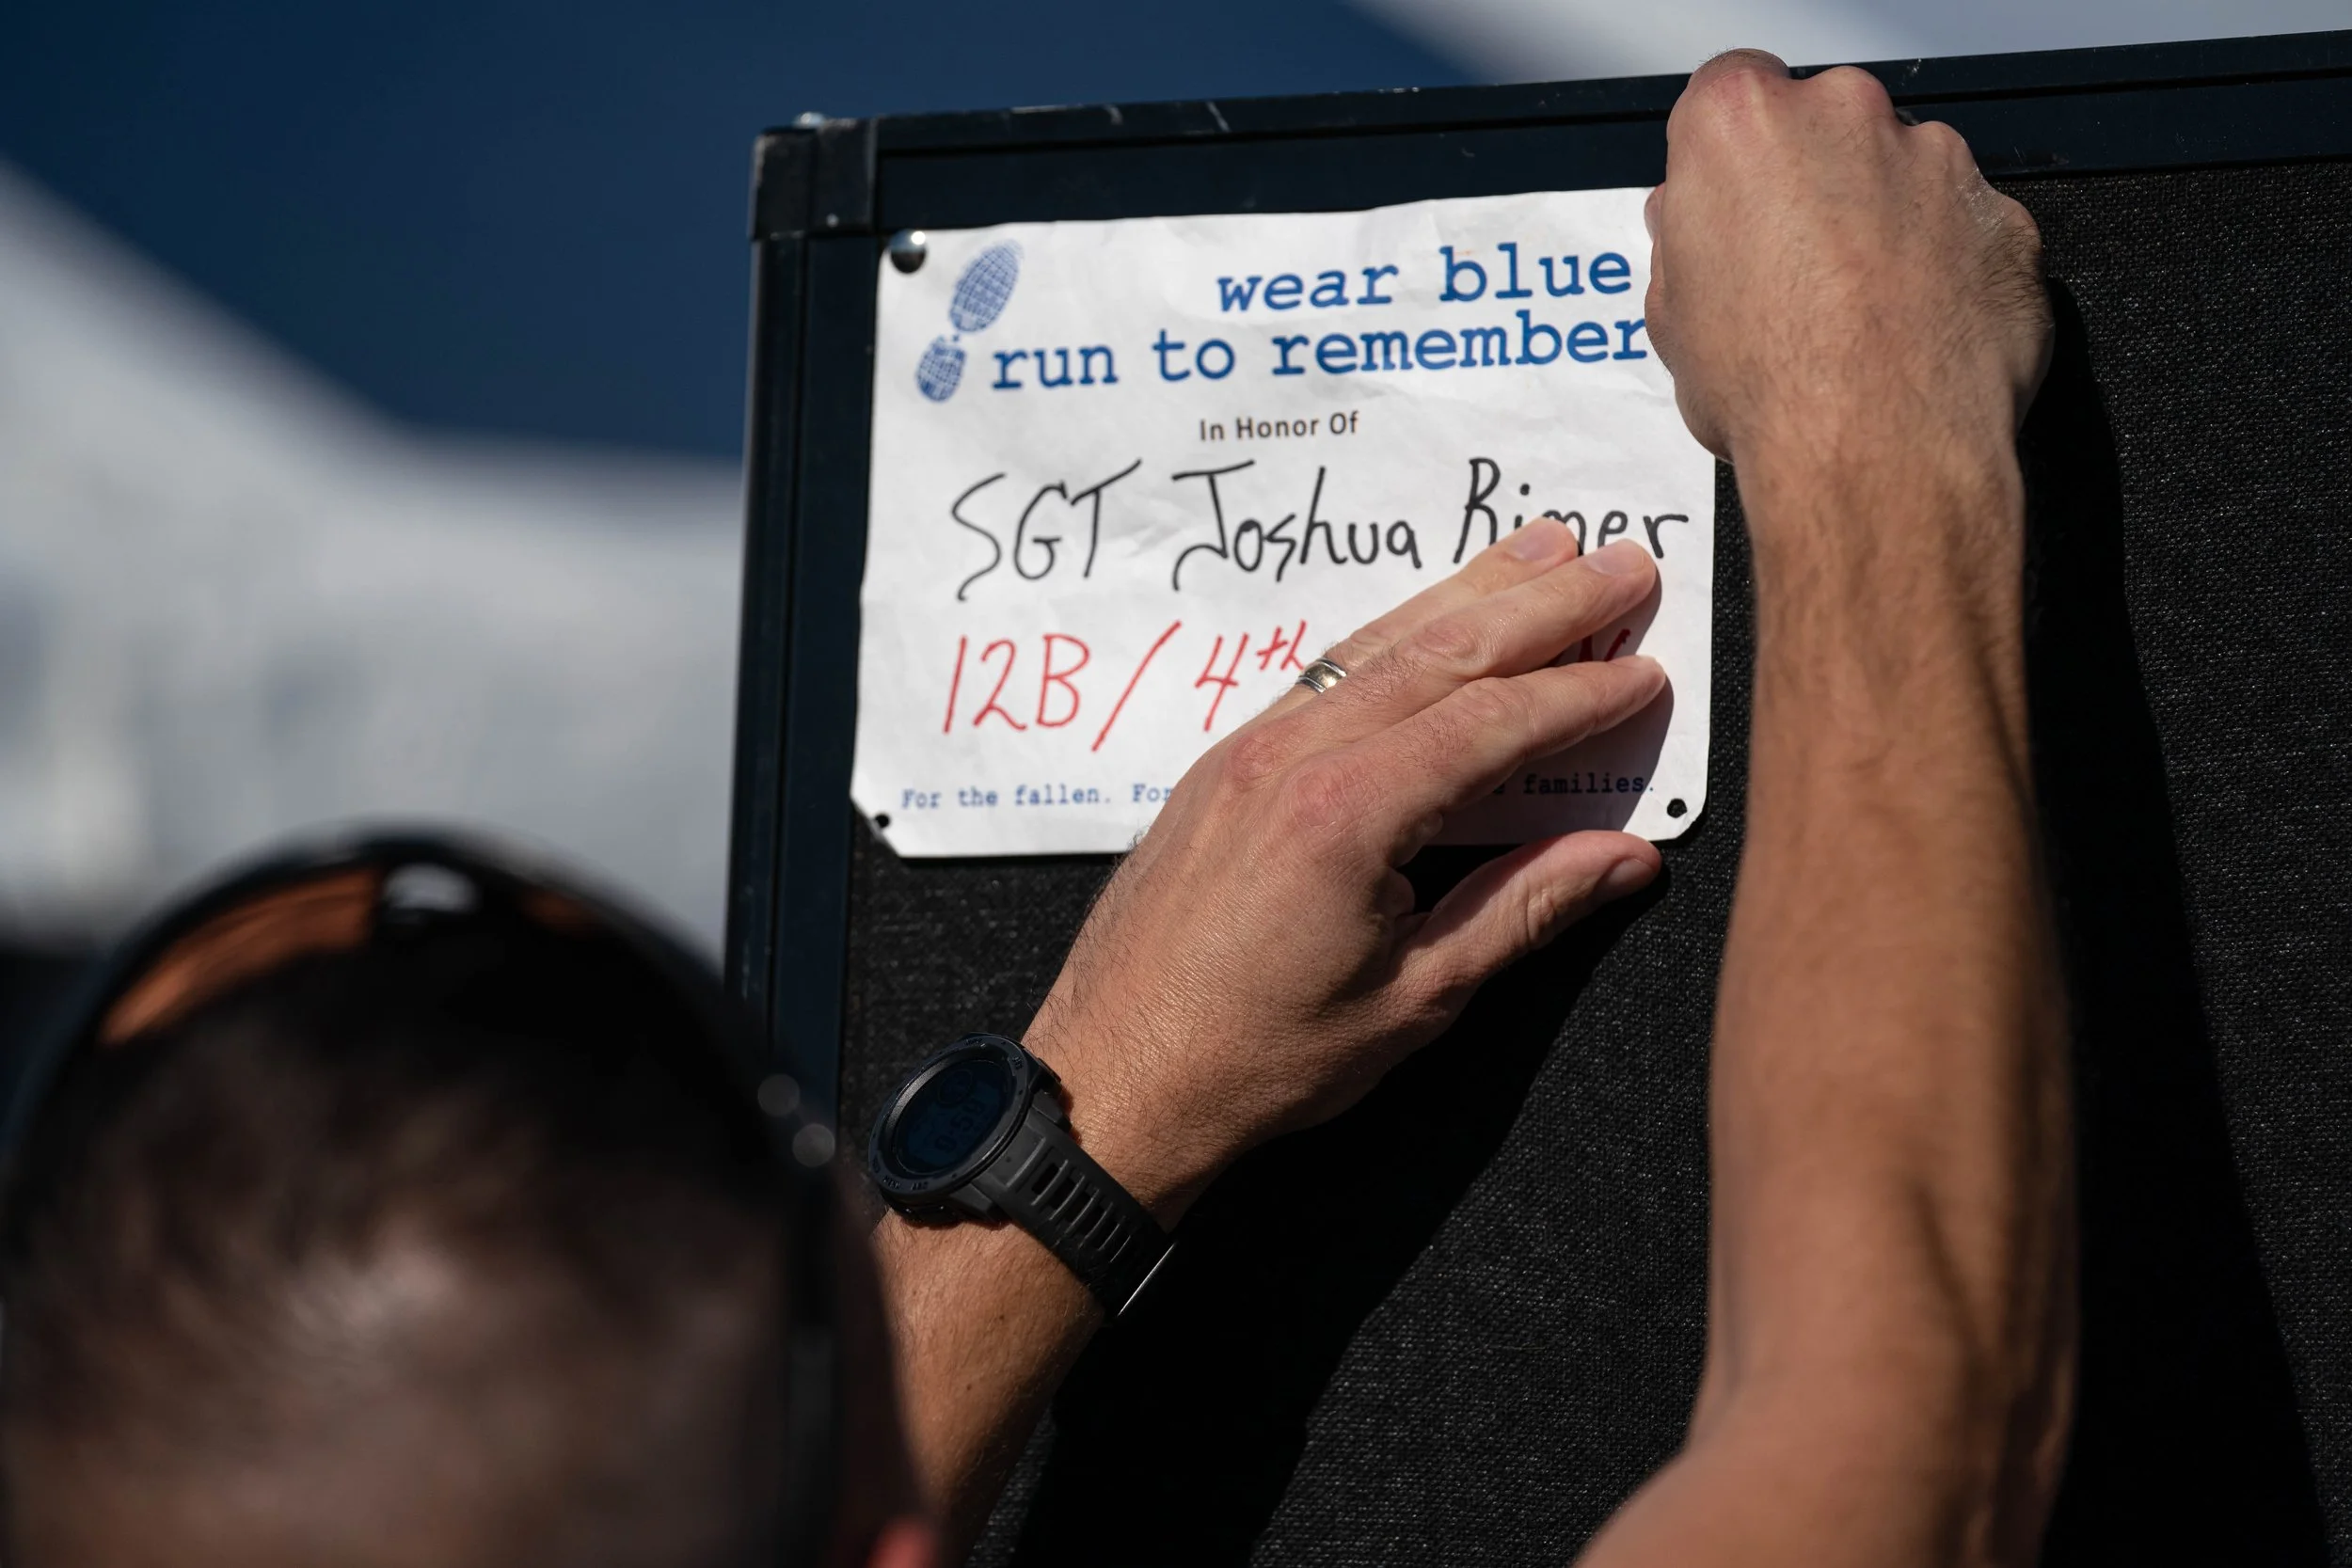 wear blue
run to remember
In Honor Of
SGT Joshua Rimer
12B / 4th
For the fallen. For families.